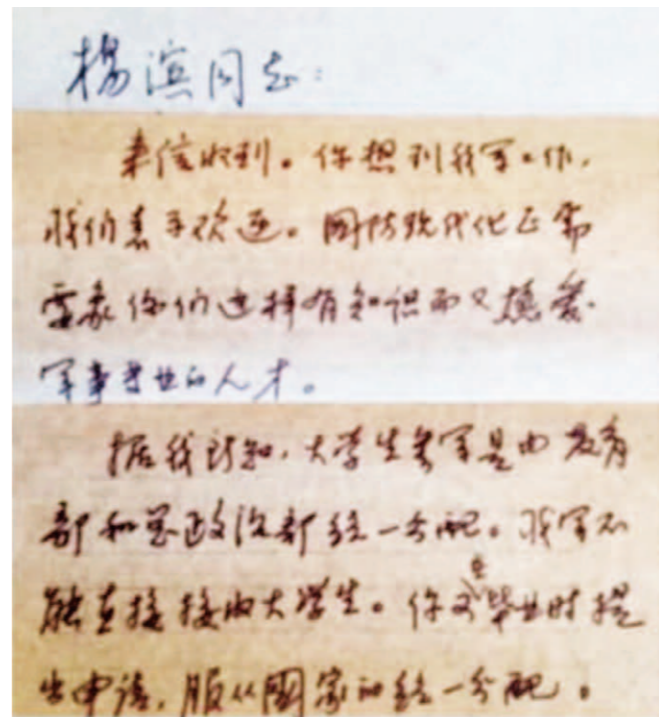 杨滨同志：
来信收到。你想到我军工作，
我们表示欢迎。国防现代化正需
要象你们这样有知识而又热爱
军事专业的人才。
据我所知，大学生参军是由教育
部和总政治部统一分配。我军不
能直接接收大学生。你在毕业时提
出申请，服从国家的统一分配。